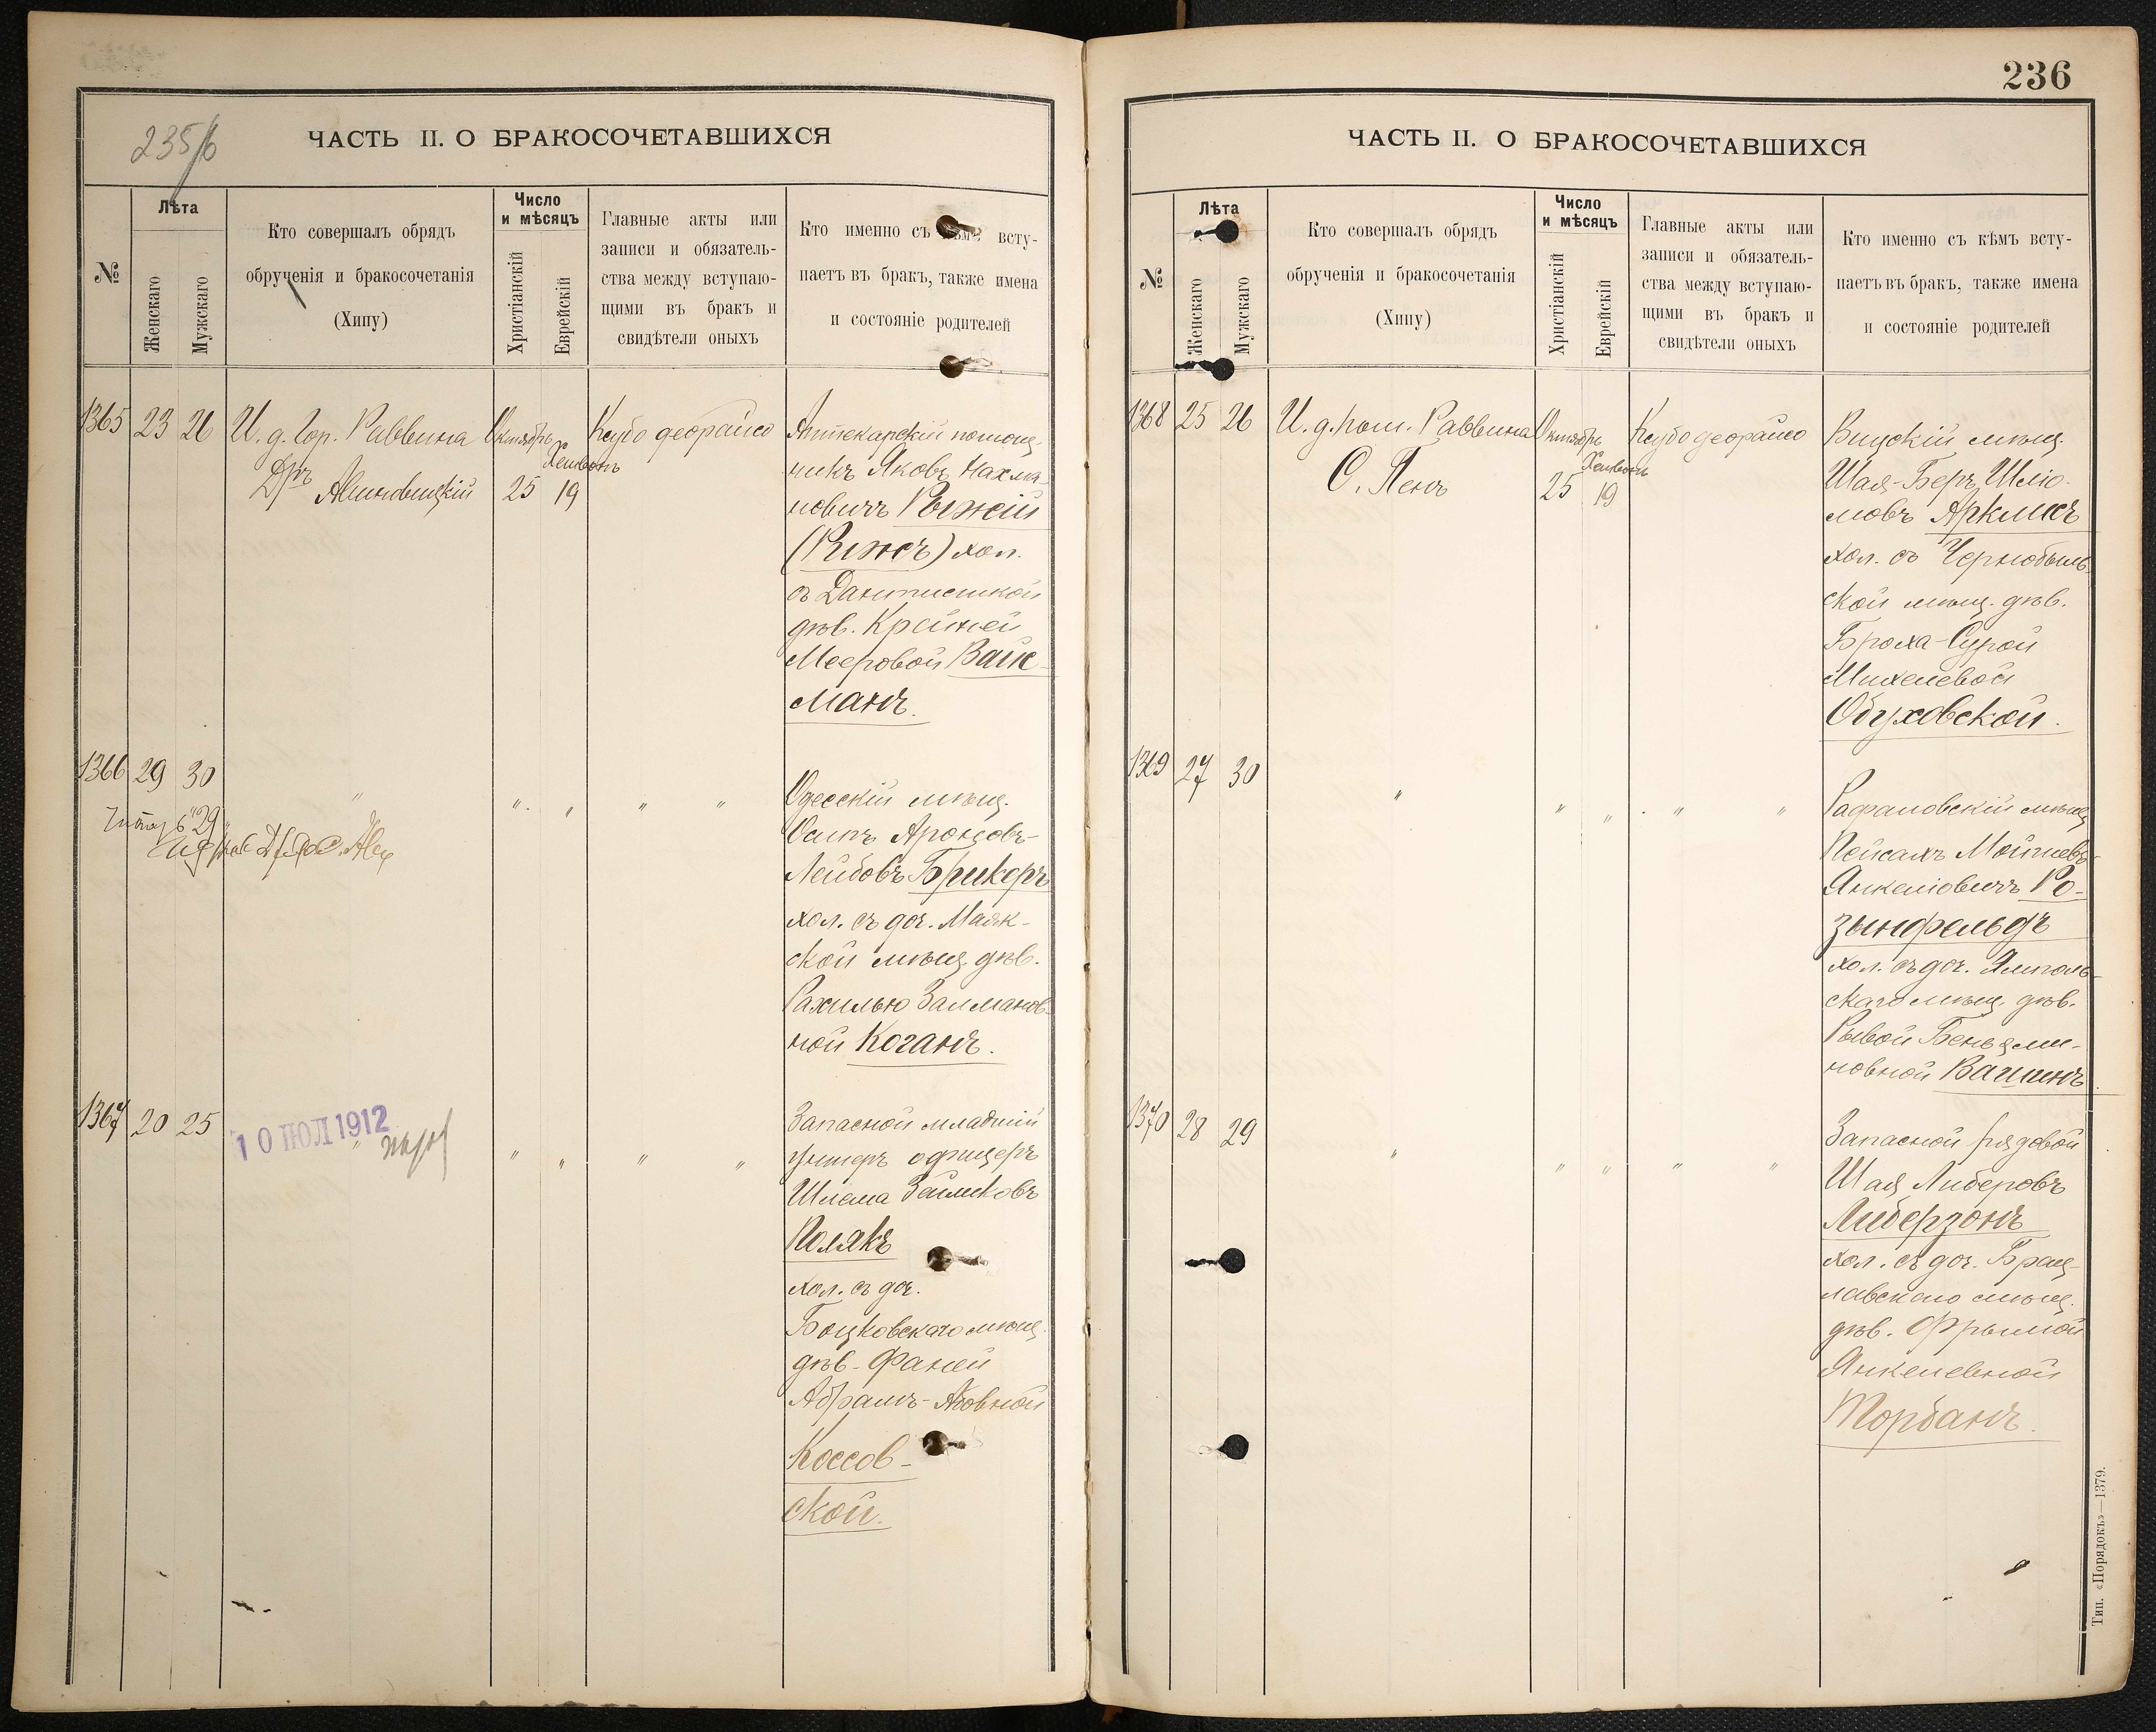 235/б
ЧАСТЬ II. О БРАКОСОЧЕТАВШИХСЯ
№
Лѣта
Женскаго
Мужскаго
Кто совершалъ обрядъ
обрученія и бракосочетанія
(Хипу)
Число
и мѣсяцъ
Христіанскій
Еврейскій
Главные акты или
записи и обязатель-
ства между вступаю-
щими въ бракъ и
свидѣтели оныхъ
Кто именно съ кѣмъ всту-
паетъ въ бракъ, также имена
и состояніе родителей
1365 23 26
И. д. Гор. Раввина
Дръ Авиновицкій
Октябрь Хешвонъ
25 19
Ксубо деорайсо
Аптекарскій помощ-
никъ Яковъ Нахма-
новичъ Рыжій
(Рыжъ) хол.
съ Дантисткой
дѣв. Крейней
Мееровой Вайс-
манъ.
1366 29 30
" " " " "
Одесскій мѣщ.
Осипъ Аронъ-
Лейбовъ Брикеръ
хол. съ доч. Маяк-
ской мѣщ. дѣв.
Рахилью Залманов-
ной Коганъ.
1367 20 25
10 ІЮЛ 1912
" " " " "
Запасной младшій
унтеръ офицеръ
Шлема Зейликовъ
Полякъ
хол. съ доч.
Боцковскаго мѣщ.
дѣв. Фаней
Абрамъ-
Коссов-
ской.
236
ЧАСТЬ II. О БРАКОСОЧЕТАВШИХСЯ
№
Лѣта
Женскаго
Мужскаго
Кто совершалъ обрядъ
обрученія и бракосочетанія
(Хипу)
Число
и мѣсяцъ
Христіанскій
Еврейскій
Главные акты или
записи и обязатель-
ства между вступаю-
щими въ бракъ и
свидѣтели оныхъ
Кто именно съ кѣмъ всту-
паетъ въ бракъ, также имена
и состояніе родителей
1368 25 26
И. д. пом. Раввина
О. Пенъ
Октябрь Хешвонъ
25 19
Ксубо деорайсо
мѣщ.
Шая-Беръ Шлio-
мовъ
хол. съ Чернобыль-
ской мѣщ. дѣв.
Броха-Сурой
Михелевой
Обуховской.
1369 27 30
" " " " "
мѣщ.
Пейсахъ Мойшевъ-
Янкелiовичъ Ро-
зынфельдъ
хол. съ доч. Ямполь-
скаго мѣщ. дѣв.
Рывой Беньями-
новной
1370 28 29
" " " " "
Запасной рядовой
Шая Либеровъ
Либерзонъ
хол. съ доч. Брац-
лавскаго мѣщ.
дѣв. Фрымой
Янкелевной
Торбанъ.
Тип. «Порядокъ»—1379.